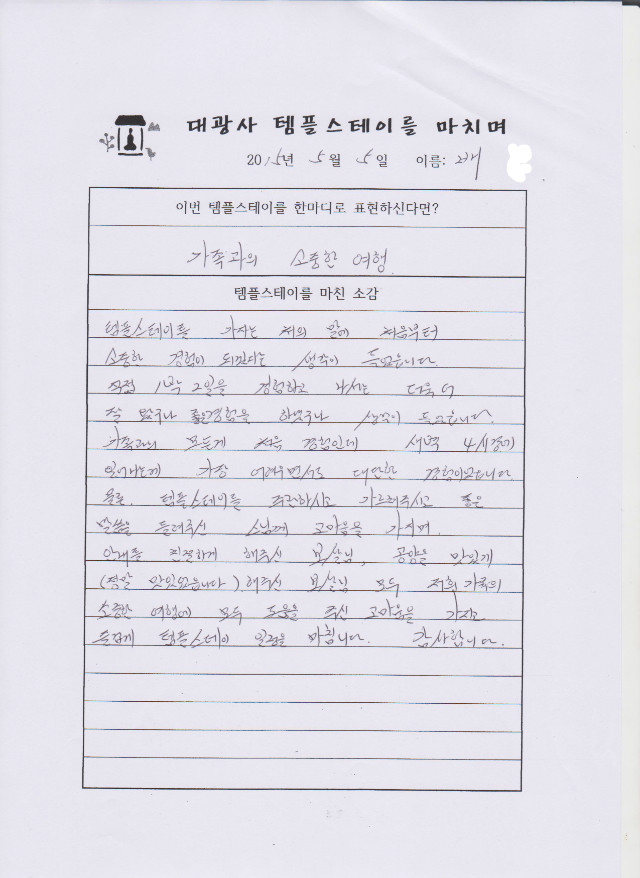 대광사 템플스테이를 마치며
2015년 5월 5일 이름: 배
이번 템플스테이를 한마디로 표현하신다면?
가족과의 소중한 여행.
템플스테이를 마친 소감
템플스테이를 가자는 저의 말에 처음부터
소중한 경험이 되겠다는 생각이 들었습니다.
직접 1박 2일을 경험하고 나서는 더욱 더
잘 왔구나 좋은경험을 하였구나 생각이 드는합니다.
가족과의 모든게 처음 경험인데 새벽 4시경에
일어나는게 가장 어려우면서도 대단한 경험이었습니다.
물론. 템플스테이를 주관하시고 가르쳐주시고 좋은
말씀을 들려주신 스님께 고마움을 가지며.
안내를 친절하게 해주신 보살님, 공양을 맛있게
(정말 맛있었습니다) 해주신 보살님 모두 저희 가족의
소중한 여행에 모두 도움을 주신 고마움을 가지고
즐겁게 템플스테이 일정을 마칩니다. 감사합니다.